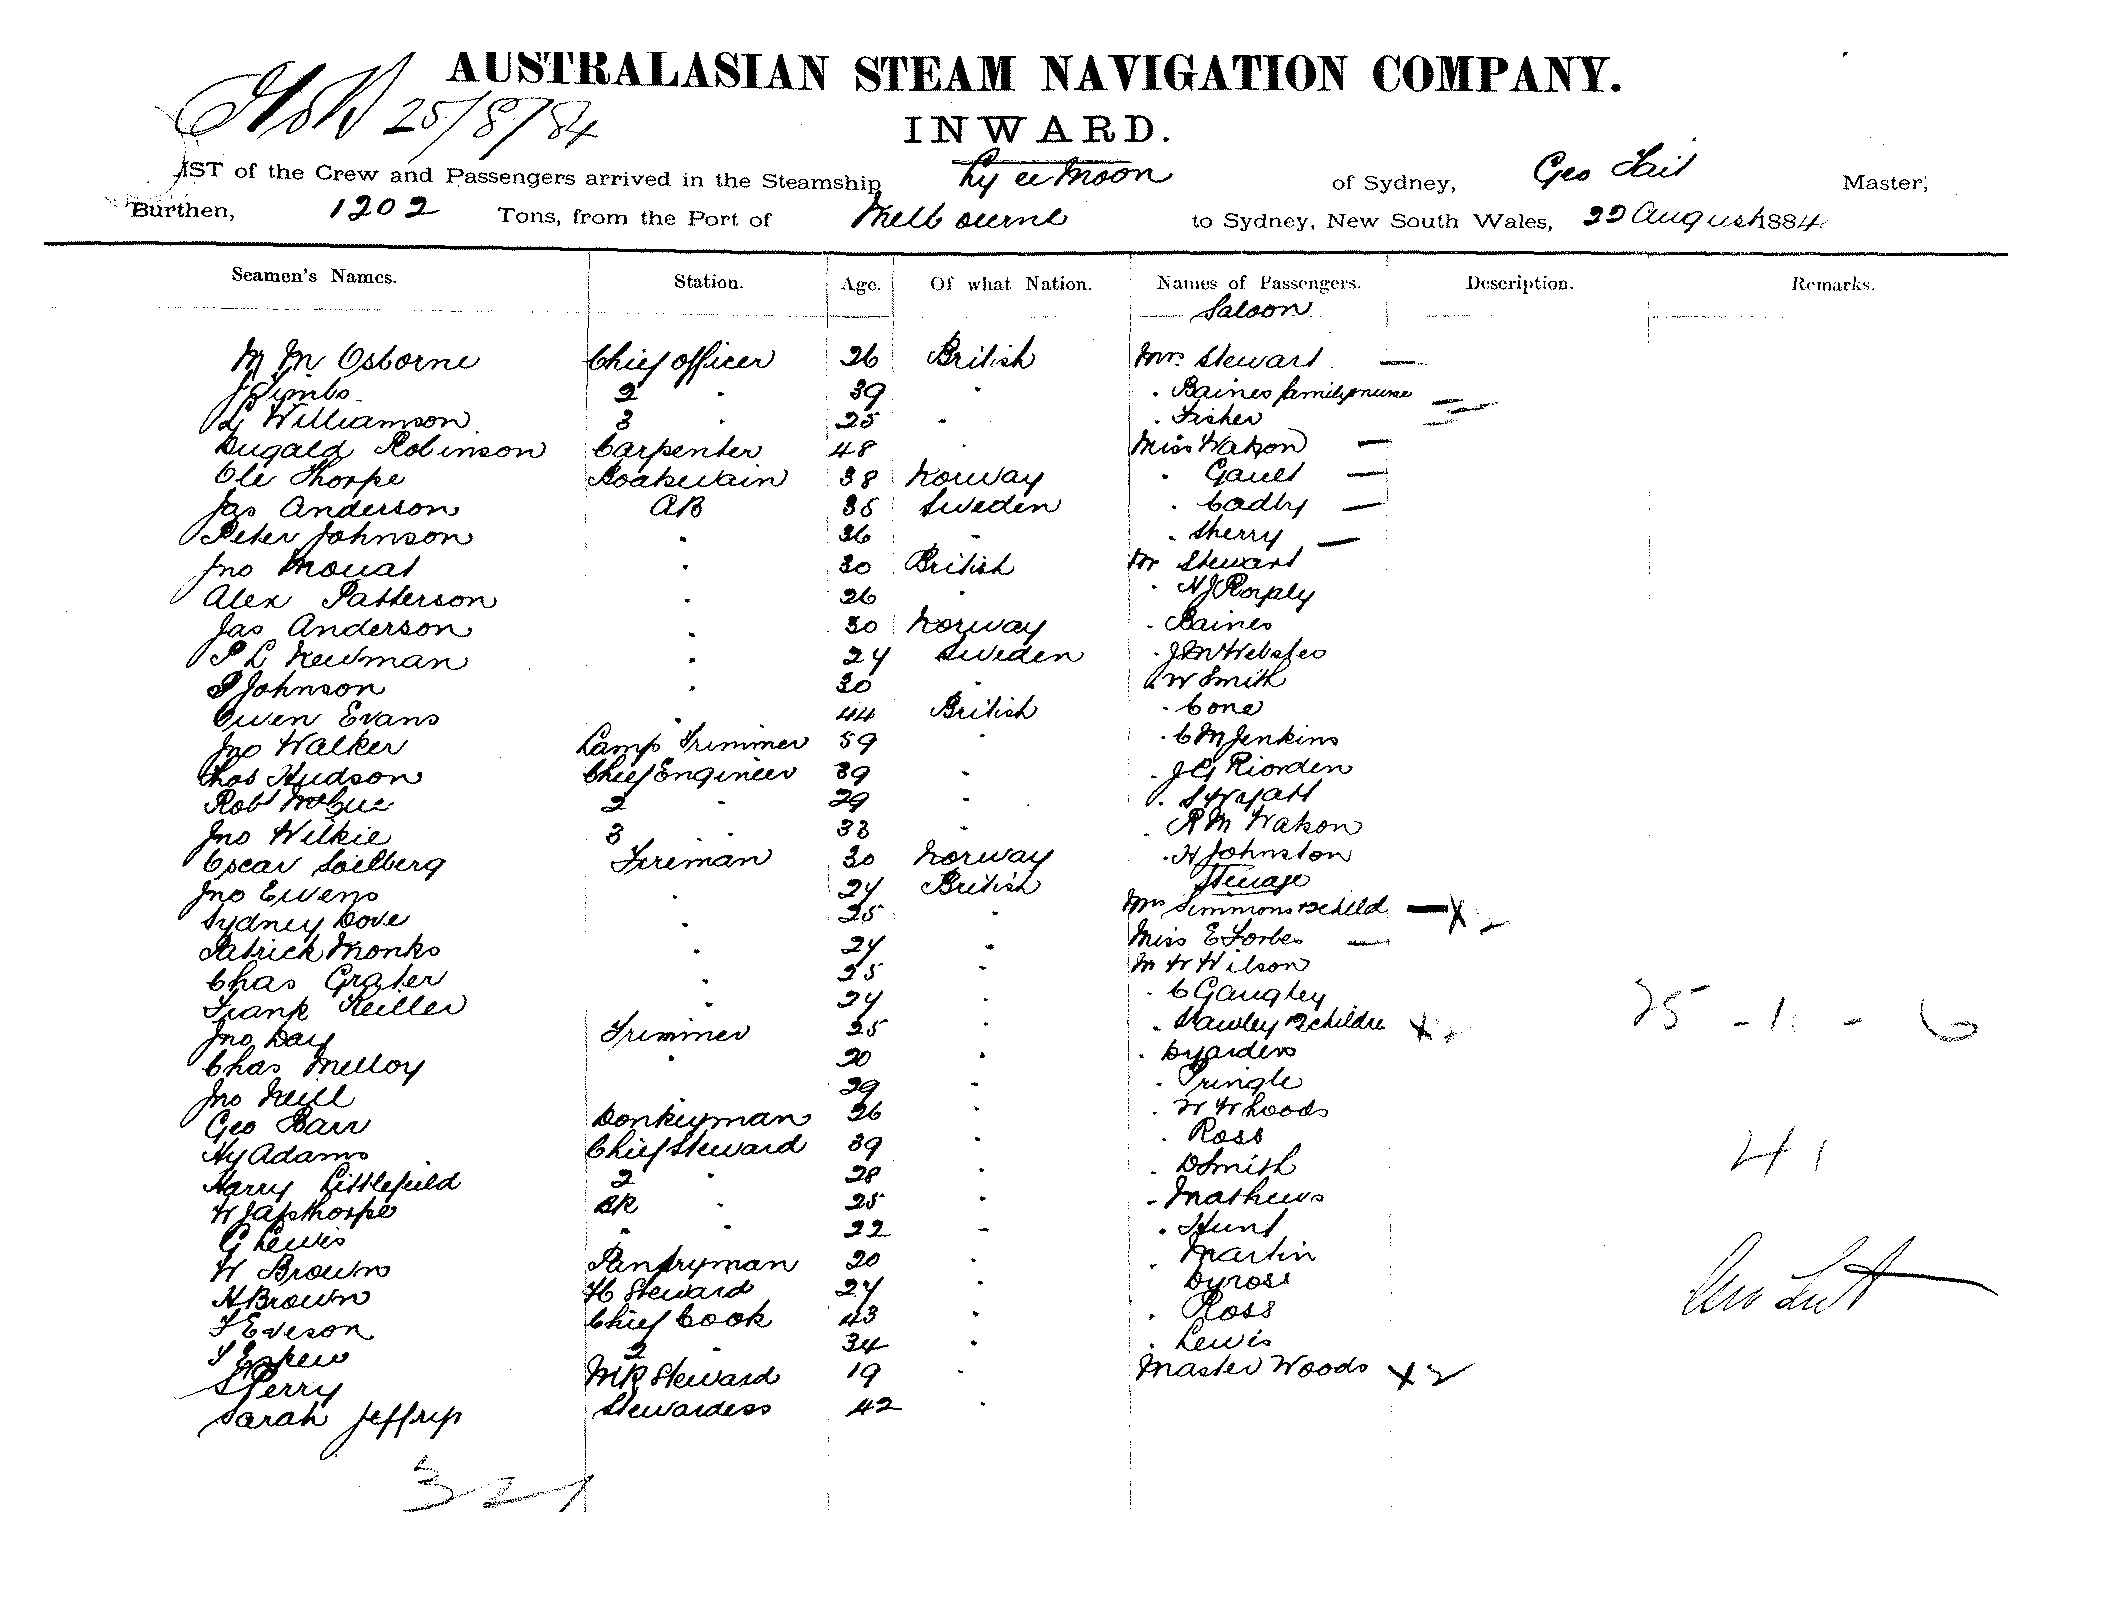 AUSTRALASIAN STEAM NAVIGATION COMPANY.
25/8/84
INWARD.
LIST of the Crew and Passengers arrived in the Steamship Ly ee Moon of Sydney, Geo Tait Master,
Burthen, 1202 Tons, from the Port of Melbourne to Sydney, New South Wales, 22 August 1884
Seamen's Names. Station. Age. Of what Nation. Names of Passengers. Description. Remarks.
Saloon
M M Osborne Chief officer 26 British Mrs. Stewart —
J Simbs 2 " 39 " " Baines family & nurse —
L Williamson 3 " 25 " " Fisher —
Dugald Robinson Carpenter 48 Miss Watson —
Ole Thorpe Boatswain 38 Norway " Gault —
Jas Anderson AB 35 Sweden " Cadby —
Peter Johnson " 36 " " Sherry —
Jno Mouat " 30 British Mr Stewart
Alex Patterson " 26 " "
Jas Anderson " 30 Norway " Baines
P L Newman " 24 Sweden " J M Webster
P Johnson " 30 " W Smith
Owen Evans " 44 British " Cone
Jno Walker Lamp Trimmer 59 " " C M Jenkins
Thos Hudson Chief Engineer 39 " " J G Riorden
Robt McCue 2 " 29 " " S Wyatt
Jno Wilkie 3 " 33 " " R M Watson
Oscar Soelberg Fireman 30 Norway " H Johnston
Steerage
Jno Ewens " 24 British Mrs Simmons & child — X 2
Sydney Dove " 25 " Miss E Forbes —
Patrick Monks " 24 " M W Wilson
Chas Grater " 25 " " C Gaughey
Frank Keiller " 24 " " Hawley & 2 childre X 2
Jno Day Trimmer 25 " " Dyarders
Chas Melloy " 20 " " Pringle
Jno Neill " 29 " " W W Woods
Geo Barr Donkeyman 26 " " Ross
Hy Adams Chief Steward 39 " " D Smith
Harry Littlefield 2 " 28 " " Mathews
W Japthorpe BR " 25 " " Hunt
G Lewis " " 22 " " Martin
W Brown Pantryman 20 " Dyross
H Brown FC Steward 24 " " Ross
F Eveson Chief Cook 43 " " Lewis
2 " 34 " Master Woods X 2
S Perry MR Steward 19 "
Sarah Jeffrip Stewardess 42 "
25 - 1 - 6
41